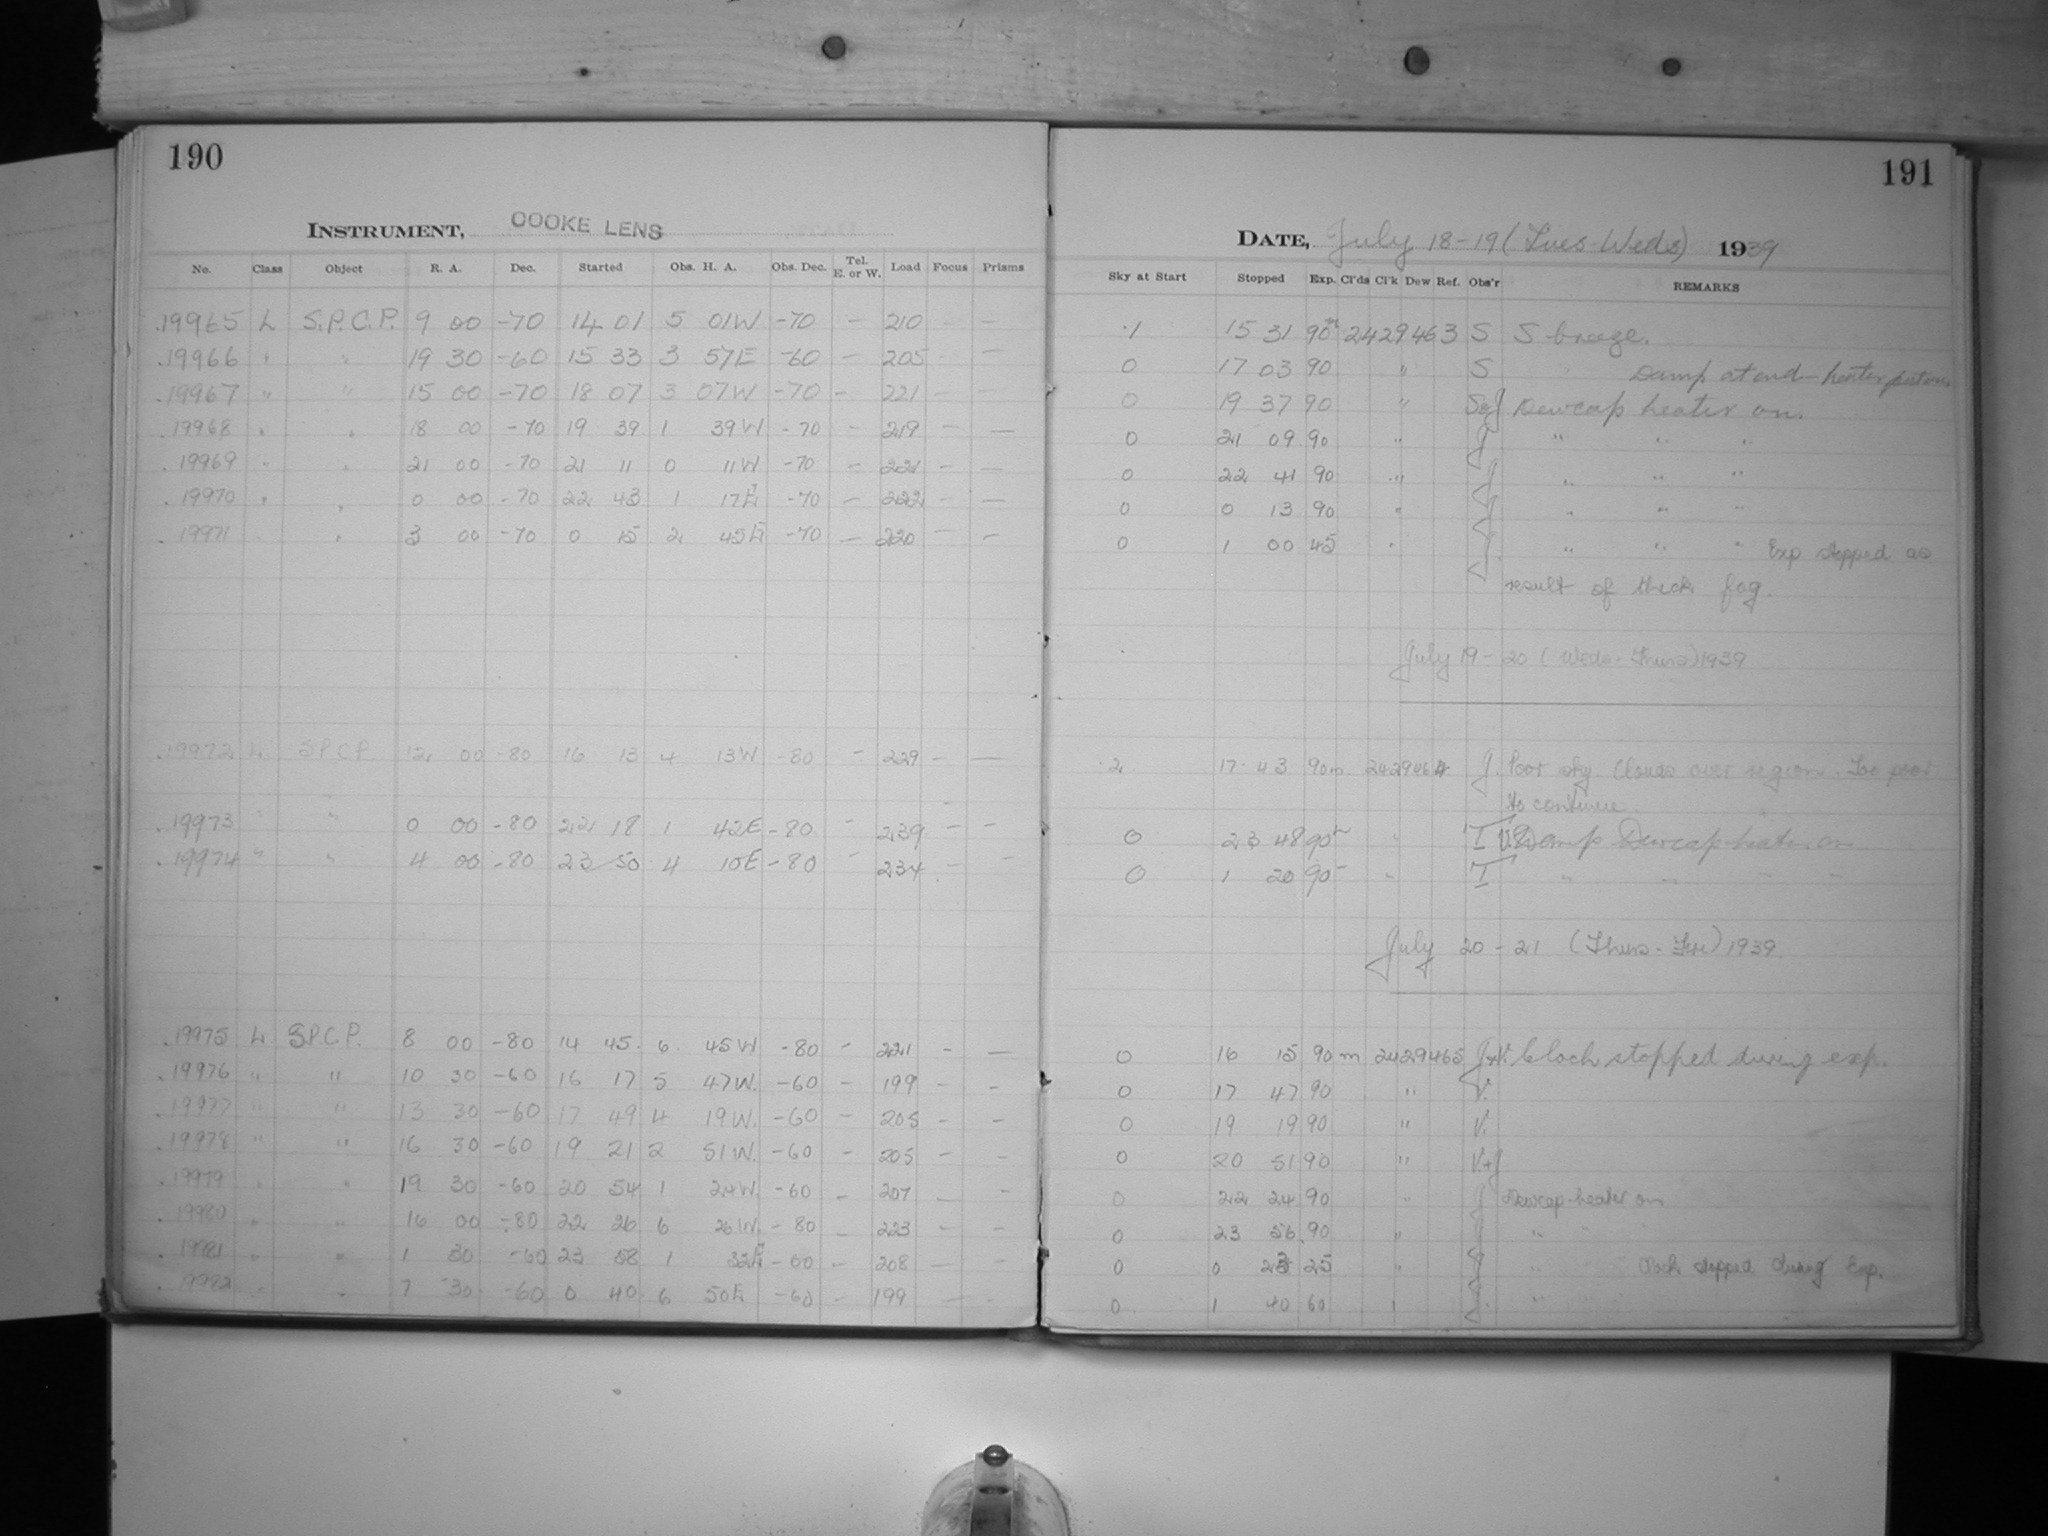 190
INSTRUMENT, COOKE LENS
No. Class Object R. A. Dec. Started Obs. H. A. Obs. Dec. Tel. E. or W. Load Focus Prisms
19965 L S.P.C.P. 9 00 -70 14 01 5 01W -70 — 210 — —
19966 " " 19 30 -60 15 33 3 57E -60 — 205 — —
19967 " " 15 00 -70 18 07 3 07W -70 — 221 — —
19968 " " 18 00 -70 19 39 1 39W -70 — 219 — —
19969 " " 21 00 -70 21 11 0 11W -70 — 221 — —
19970 " " 0 00 -70 22 43 1 17E -70 — 222 — —
19971 " " 3 00 -70 0 15 2 45E -70 — 220 — —
19972 L S.P.C.P. 12 00 -80 16 13 4 13W -80 — 229 — —
19973 " " 0 00 -80 22 18 1 42E -80 — 239 — —
19974 " " 4 00 -80 23 50 4 10E -80 — 234 —
19975 L S.P.C.P. 8 00 -80 14 45 6 45W -80 — 221 — —
19976 " " 10 30 -60 16 17 5 47W. -60 — 199 — —
19977 " " 13 30 -60 17 49 4 19W. -60 — 205 — —
19978 " " 16 30 -60 19 21 2 51W. -60 — 205 — —
19979 " " 19 30 -60 20 54 1 24W. -60 — 207 — —
19980 " " 16 00 -80 22 26 6 26W. -80 — 223 — —
19981 " " 1 30 -60 23 58 1 32E -60 — 208 — —
19982 " " 7 30 -60 0 40 6 50E -60 — 199 — —
191
DATE, July 18-19 (Tues-Weds) 1939
Sky at Start Stopped Exp. Cl'ds Cl'k Dew Ref. Obs'r REMARKS
.1 15 31 90m 2429463 S S breeze.
0 17 03 90 " S Damp at end - heater put on
0 19 37 90 " S&J Dewcap heater on.
0 21 09 90 " J " " "
0 22 41 90 " J " " "
0 0 13 90 " J " " "
0 1 00 45 " J " " " Exp stopped as
result of thick fog.
July 19-20 (Weds-Thurs) 1939
.2 17 43 90m 2429464 J. Poor sky. Clouds over region. Too poor
to continue.
0 23 48 90m " T Damp Dewcap heater on
0 1 20 90 " T " " " "
July 20-21 (Thurs-Fri) 1939
0 16 15 90m 2429465 J+V. Clock stopped during exp.
0 17 47 90 " V.
0 19 19 90 " V.
0 20 51 90 " V+J
0 22 24 90 " J Dewcap heater on
0 23 56 90 " J " "
0 0 23 25 " J " " Clock stopped during Exp.
0 1 40 60 " J " "